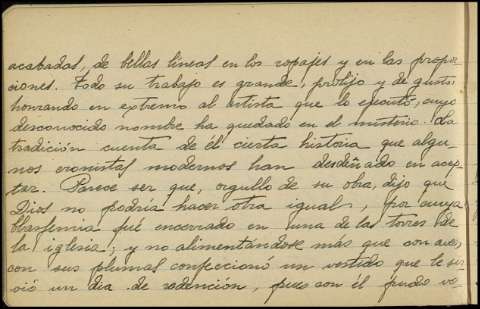 acabadas, de bellas lineas en los ropajes y en las propor
ciones. Todo su trabajo es grande, prolijo y de gusto:
honrando en extremo al artista que lo ejecutó, cuyo
desconocido nombre ha quedado en el misterio. La
tradición cuenta de él cierta historia que algu-
nos cronistas modernos han desdeñado en acep-
tar. Parece ser que, orgullo de su obra, dijo que
Dios no podría hacer otra igual, por cuya
blasfemia fué encerrado en una de las torres de
la iglesia; y no alimentándose más que con aves,
con sus plumas confeccionó un vestido que le sir
vió un dia de redención, pues con él pudo vo